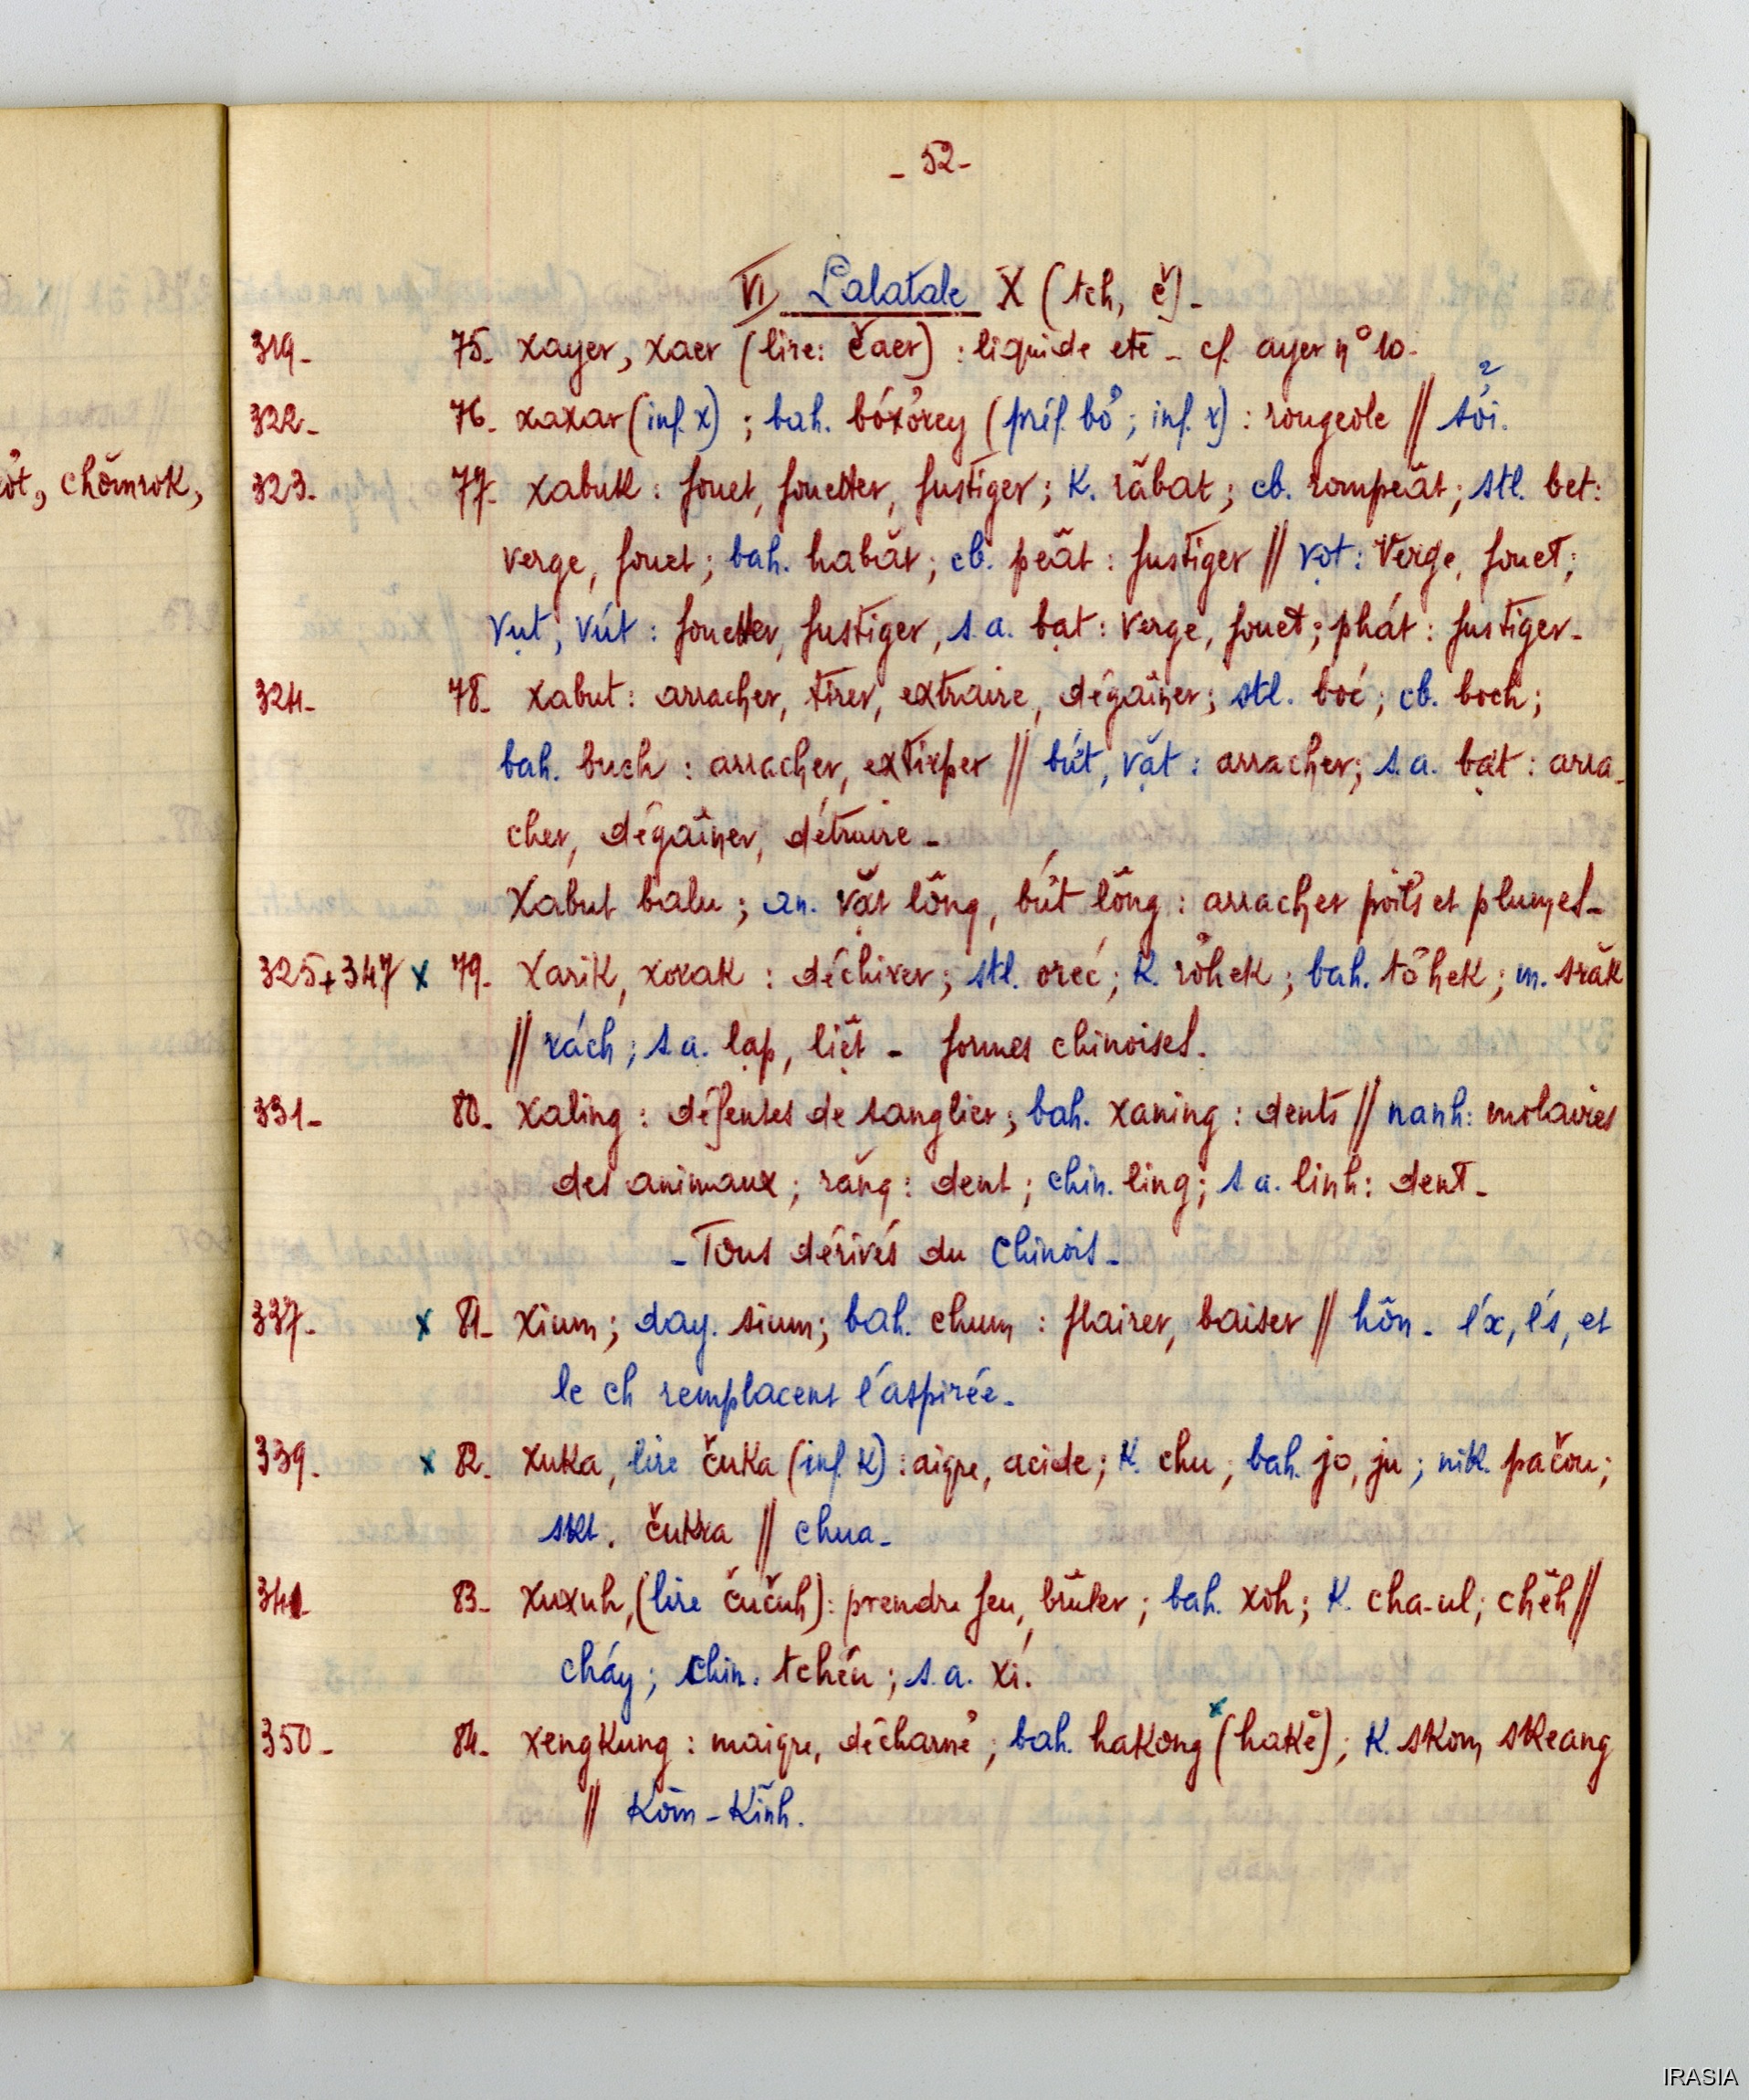 - 52 -
ót, chŏmrok,
VI) Palatale X (tch, č) -
319- 75- xayer, xaer (lire: čaer) : liquide etc - cf. ayer nº 10-
322- 76- xaxar (inf. x) ; bah. bóxơ̆rey (préf. bơ̆ ; inf. r) : rougeole // sởi. 2
323- 77- xabuk : fouet, fouetter, fustiger ; K. răbat ; cb. rompeăt ; stl. bet :
verge, fouet ; bah. habăt ; cb. peăt : fustiger // vọt : Verge, fouet ;
vụt, vút : fouetter, fustiger, s.a. bạt : verge, fouet ; phát : fustiger -
324- 78- xabut : arracher, tirer, extraire, dégaîner ; stl. boć ; cb. boch ;
bah. buch : arracher, extirper // bứt, vặt : arracher ; s.a. bạt : arra-
cher, dégaîner, détruire -
Xabut balu ; an. vặt lông, bứt lông : arracher poils et plumes -
325+347 x 79- Xarik, xorak : déchirer ; stl. oreć ; K. rơ̆hek ; bah. tơ̆hek ; m. srăk
// rách ; s.a. lạp, liệt - formes chinoises.
331- 80- xaling : défenses de sanglier ; bah. xaning : dents // nanh : molaires
des animaux ; răng : dent ; chin. ling ; s.a. linh : dent -
- Tous dérivés du Chinois -
337- x 81- xium ; day. sium ; bah. chum : flairer, baiser // hôn - l'x, l's, et
le ch remplacent l'aspirée -
339- x 82- xuka, lire čuka (inf. k) : aigre, acide ; K. chu ; bah. jo, ju ; nik. pačou ;
skt. čukra // chua -
341- 83- xuxuh, (lire čučuh) : prendre feu, brûler ; bah. xŏh ; K. cha-ul ; chĕh //
cháy ; chin. tchéu ; s.a. xí.
350- 84- xengkung : maigre, décharné ; bah. hakong x (hakĕ) ; K. skom, skeang
// Kỏm-Kỉnh.
IRASIA